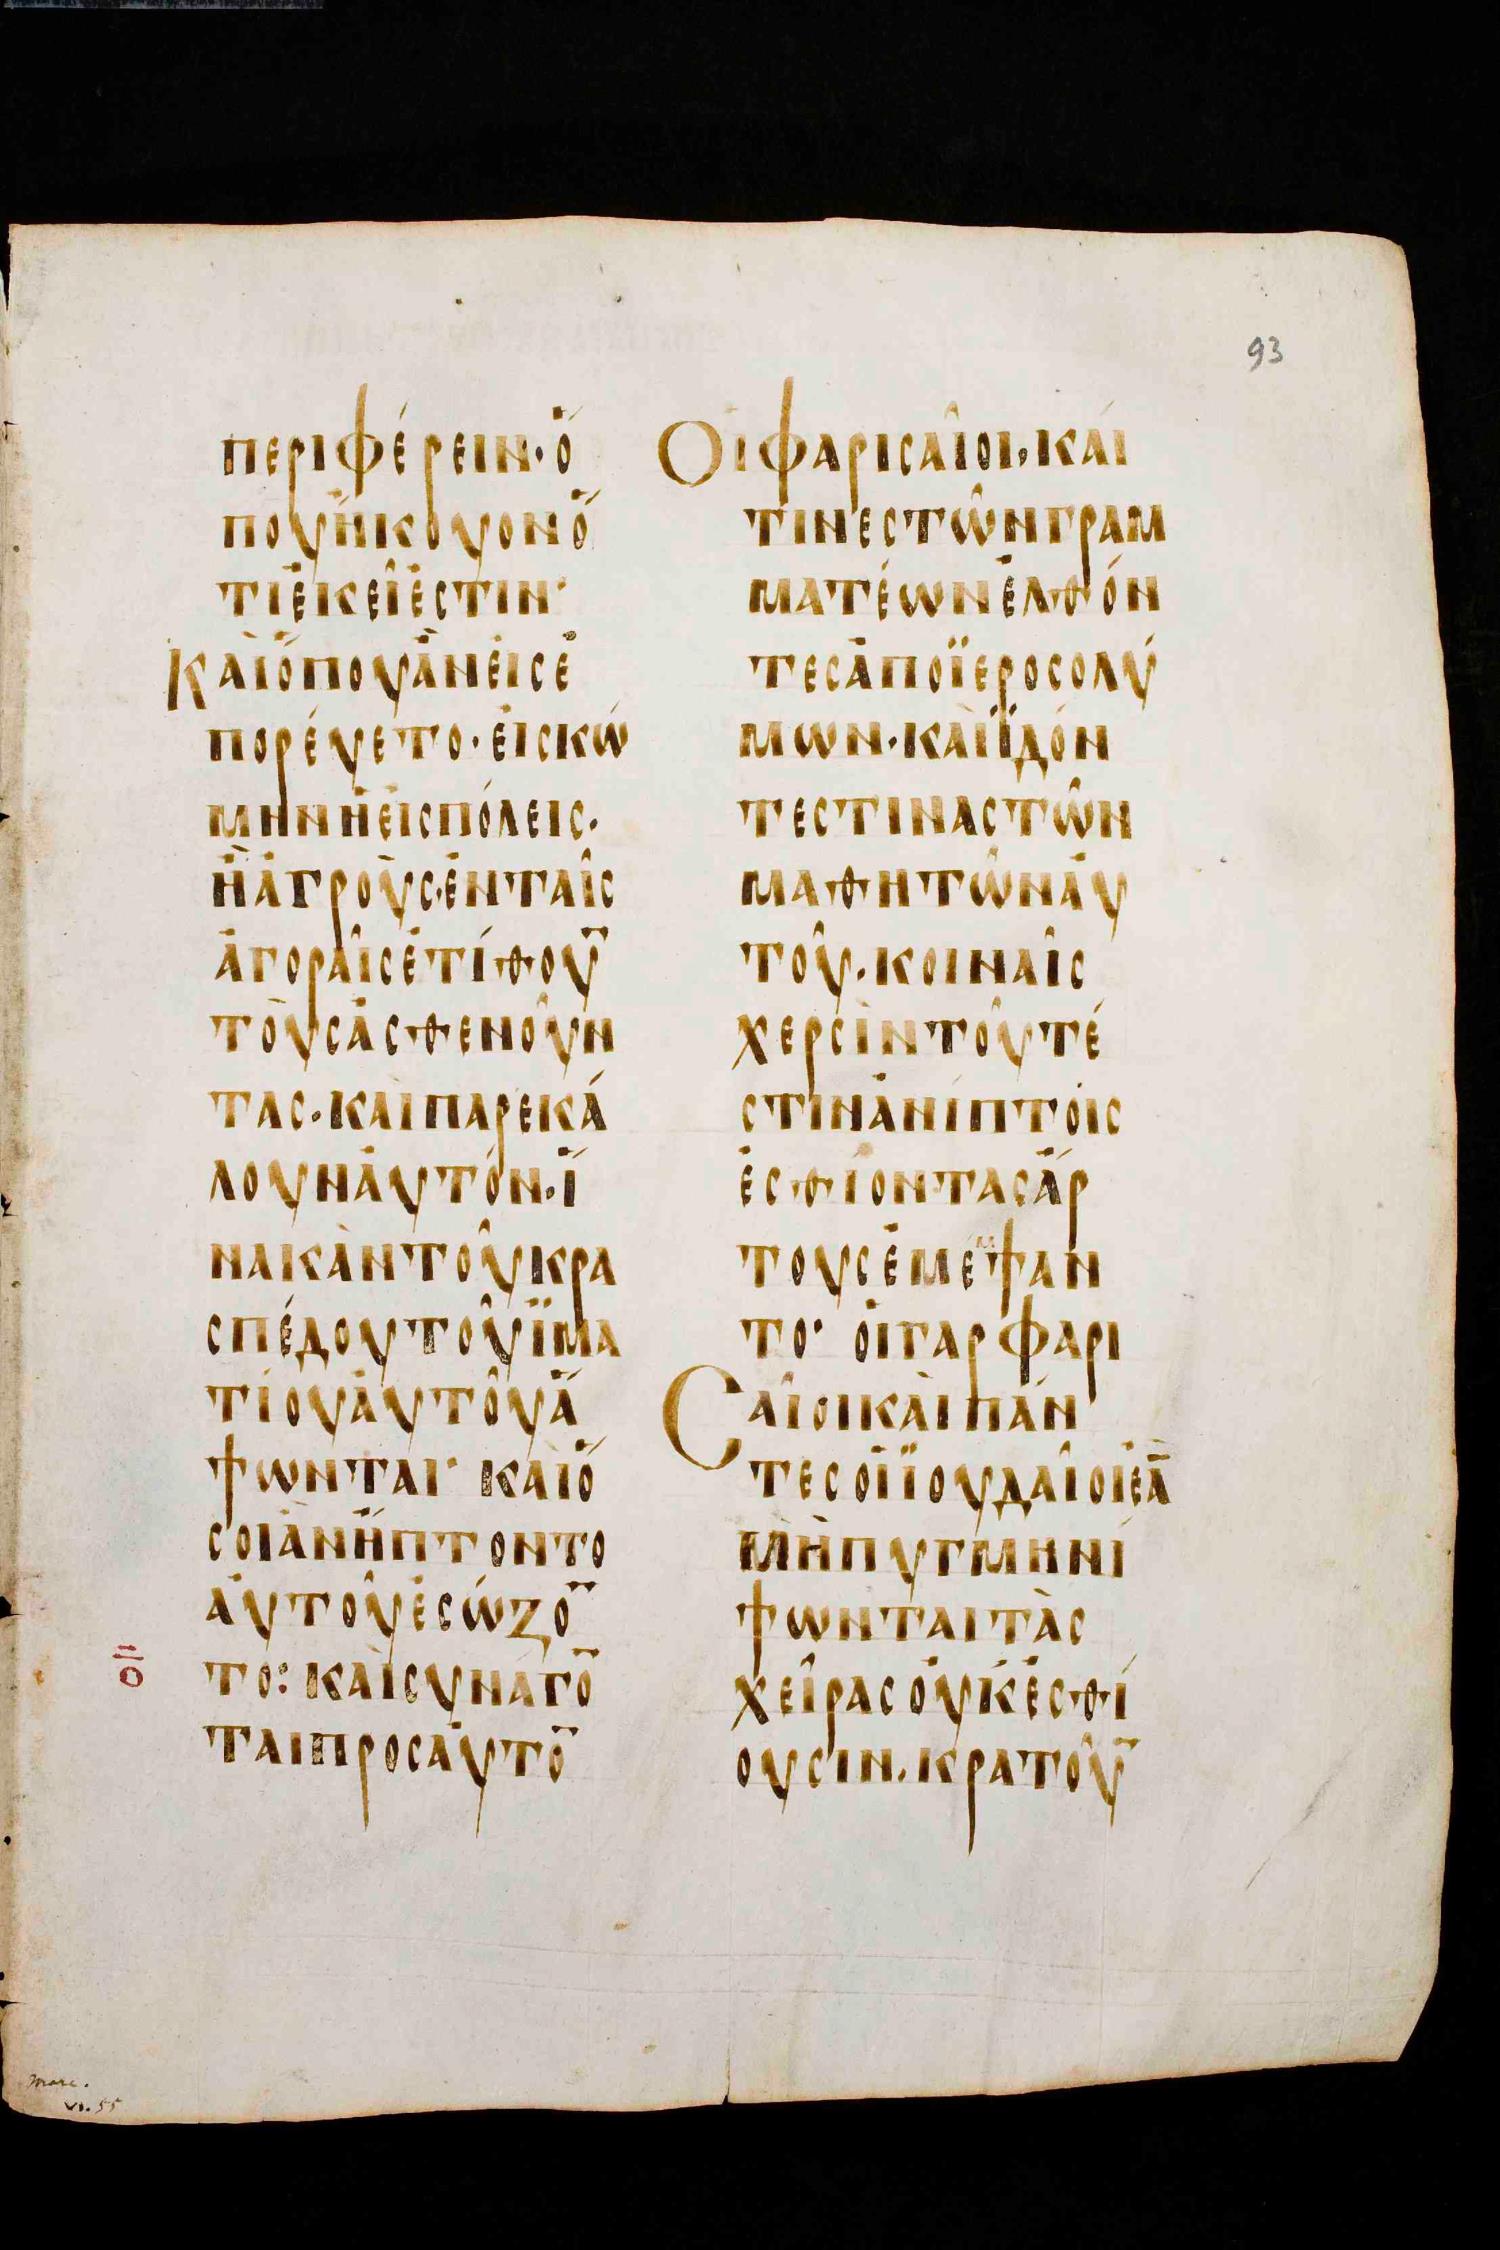 93
περιφέρειν· ὅ
που ἤκουον ὅ
τι ἐκεῖ ἐστιν·
Καὶ ὅπου ἂν εἰσε
πορέυετο· εἰς κώ
μην ἢ εἰς πόλεις·
ἢ ἀγροὺς· ἐν ταῖς
ἀγοραῖς ἐτίθου̅
τοὺς ἀσθενοῦν
τας· καὶ παρεκά
λουν ἀυτόν· ἵ
να κὰν τοῦ κρα
σπέδου τοῦ ἱμα
τίου ἀυτοῦ ἅ
ψωνται· καὶ ὅ
σοι ἂν ἥπτοντο
ἀυτοῦ ἐσώζο̅
το: καὶ συνάγο̅
ται προς ἀυτο̅
ιο
Οι φαρισαῖοι· και
τινες τῶν γραμ
ματέων ἐλθόν
τες ἀπο ϊεροσολύ
μων· καὶ ἰδόν
τες τινας τῶν
μαθητῶν ἀυ
τοῦ· κοιναῖς
χερσὶν τοῦτέ
στιν ἀνίπτοις
ἐσθίοντας ἄρ
τους ἐμέμψαν
το· ὁι γαρ φαρι
Σαῖοι καὶ πάν
τες οἱ ϊουδαῖοι ἐὰ̅
μὴ πυγμη νί
ψωνται τὰς
χεῖρας ὀυκ ἐσθί
ουσιν· κρατοῦ̅
marc.
VI. 55